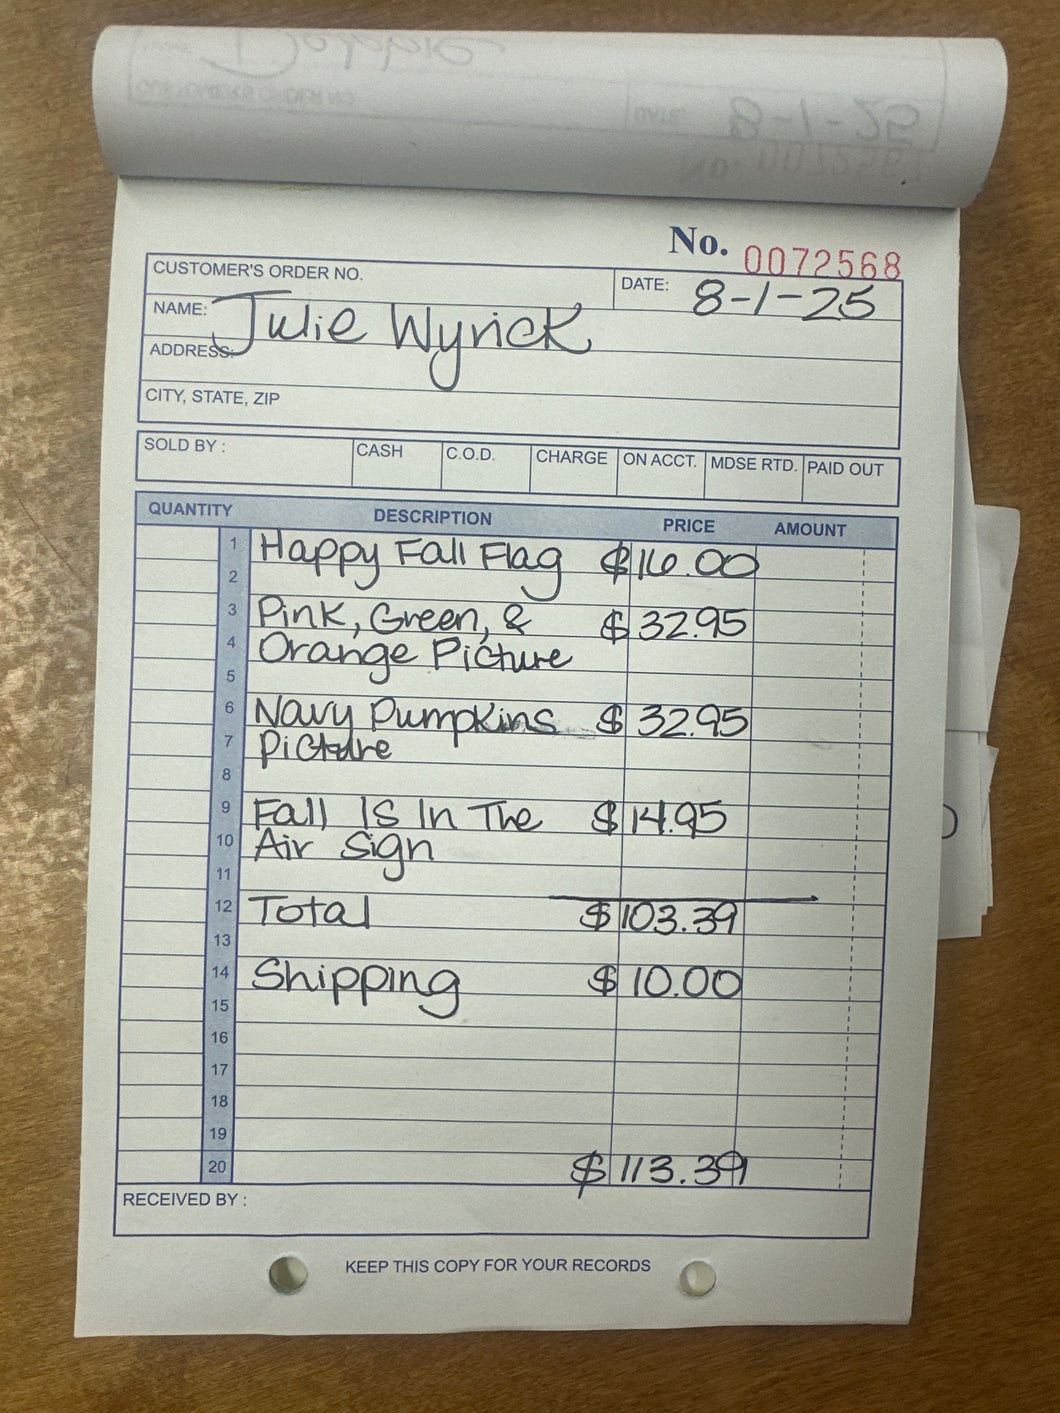 No. 0072568
CUSTOMER'S ORDER NO. DATE: 8-1-25
NAME: Julie Wyrick
ADDRESS:
CITY, STATE, ZIP
SOLD BY : CASH C.O.D. CHARGE ON ACCT. MDSE RTD. PAID OUT
QUANTITY DESCRIPTION PRICE AMOUNT
1 Happy Fall Flag $16.00
2
3 Pink, Green, & $32.95
4 Orange Picture
5
6 Navy Pumpkins $32.95
7 Picture
8
9 Fall Is In The $14.95
10 Air Sign
11
12 Total $103.39
13
14 Shipping $10.00
15
16
17
18
19
20 $113.39
RECEIVED BY :
KEEP THIS COPY FOR YOUR RECORDS